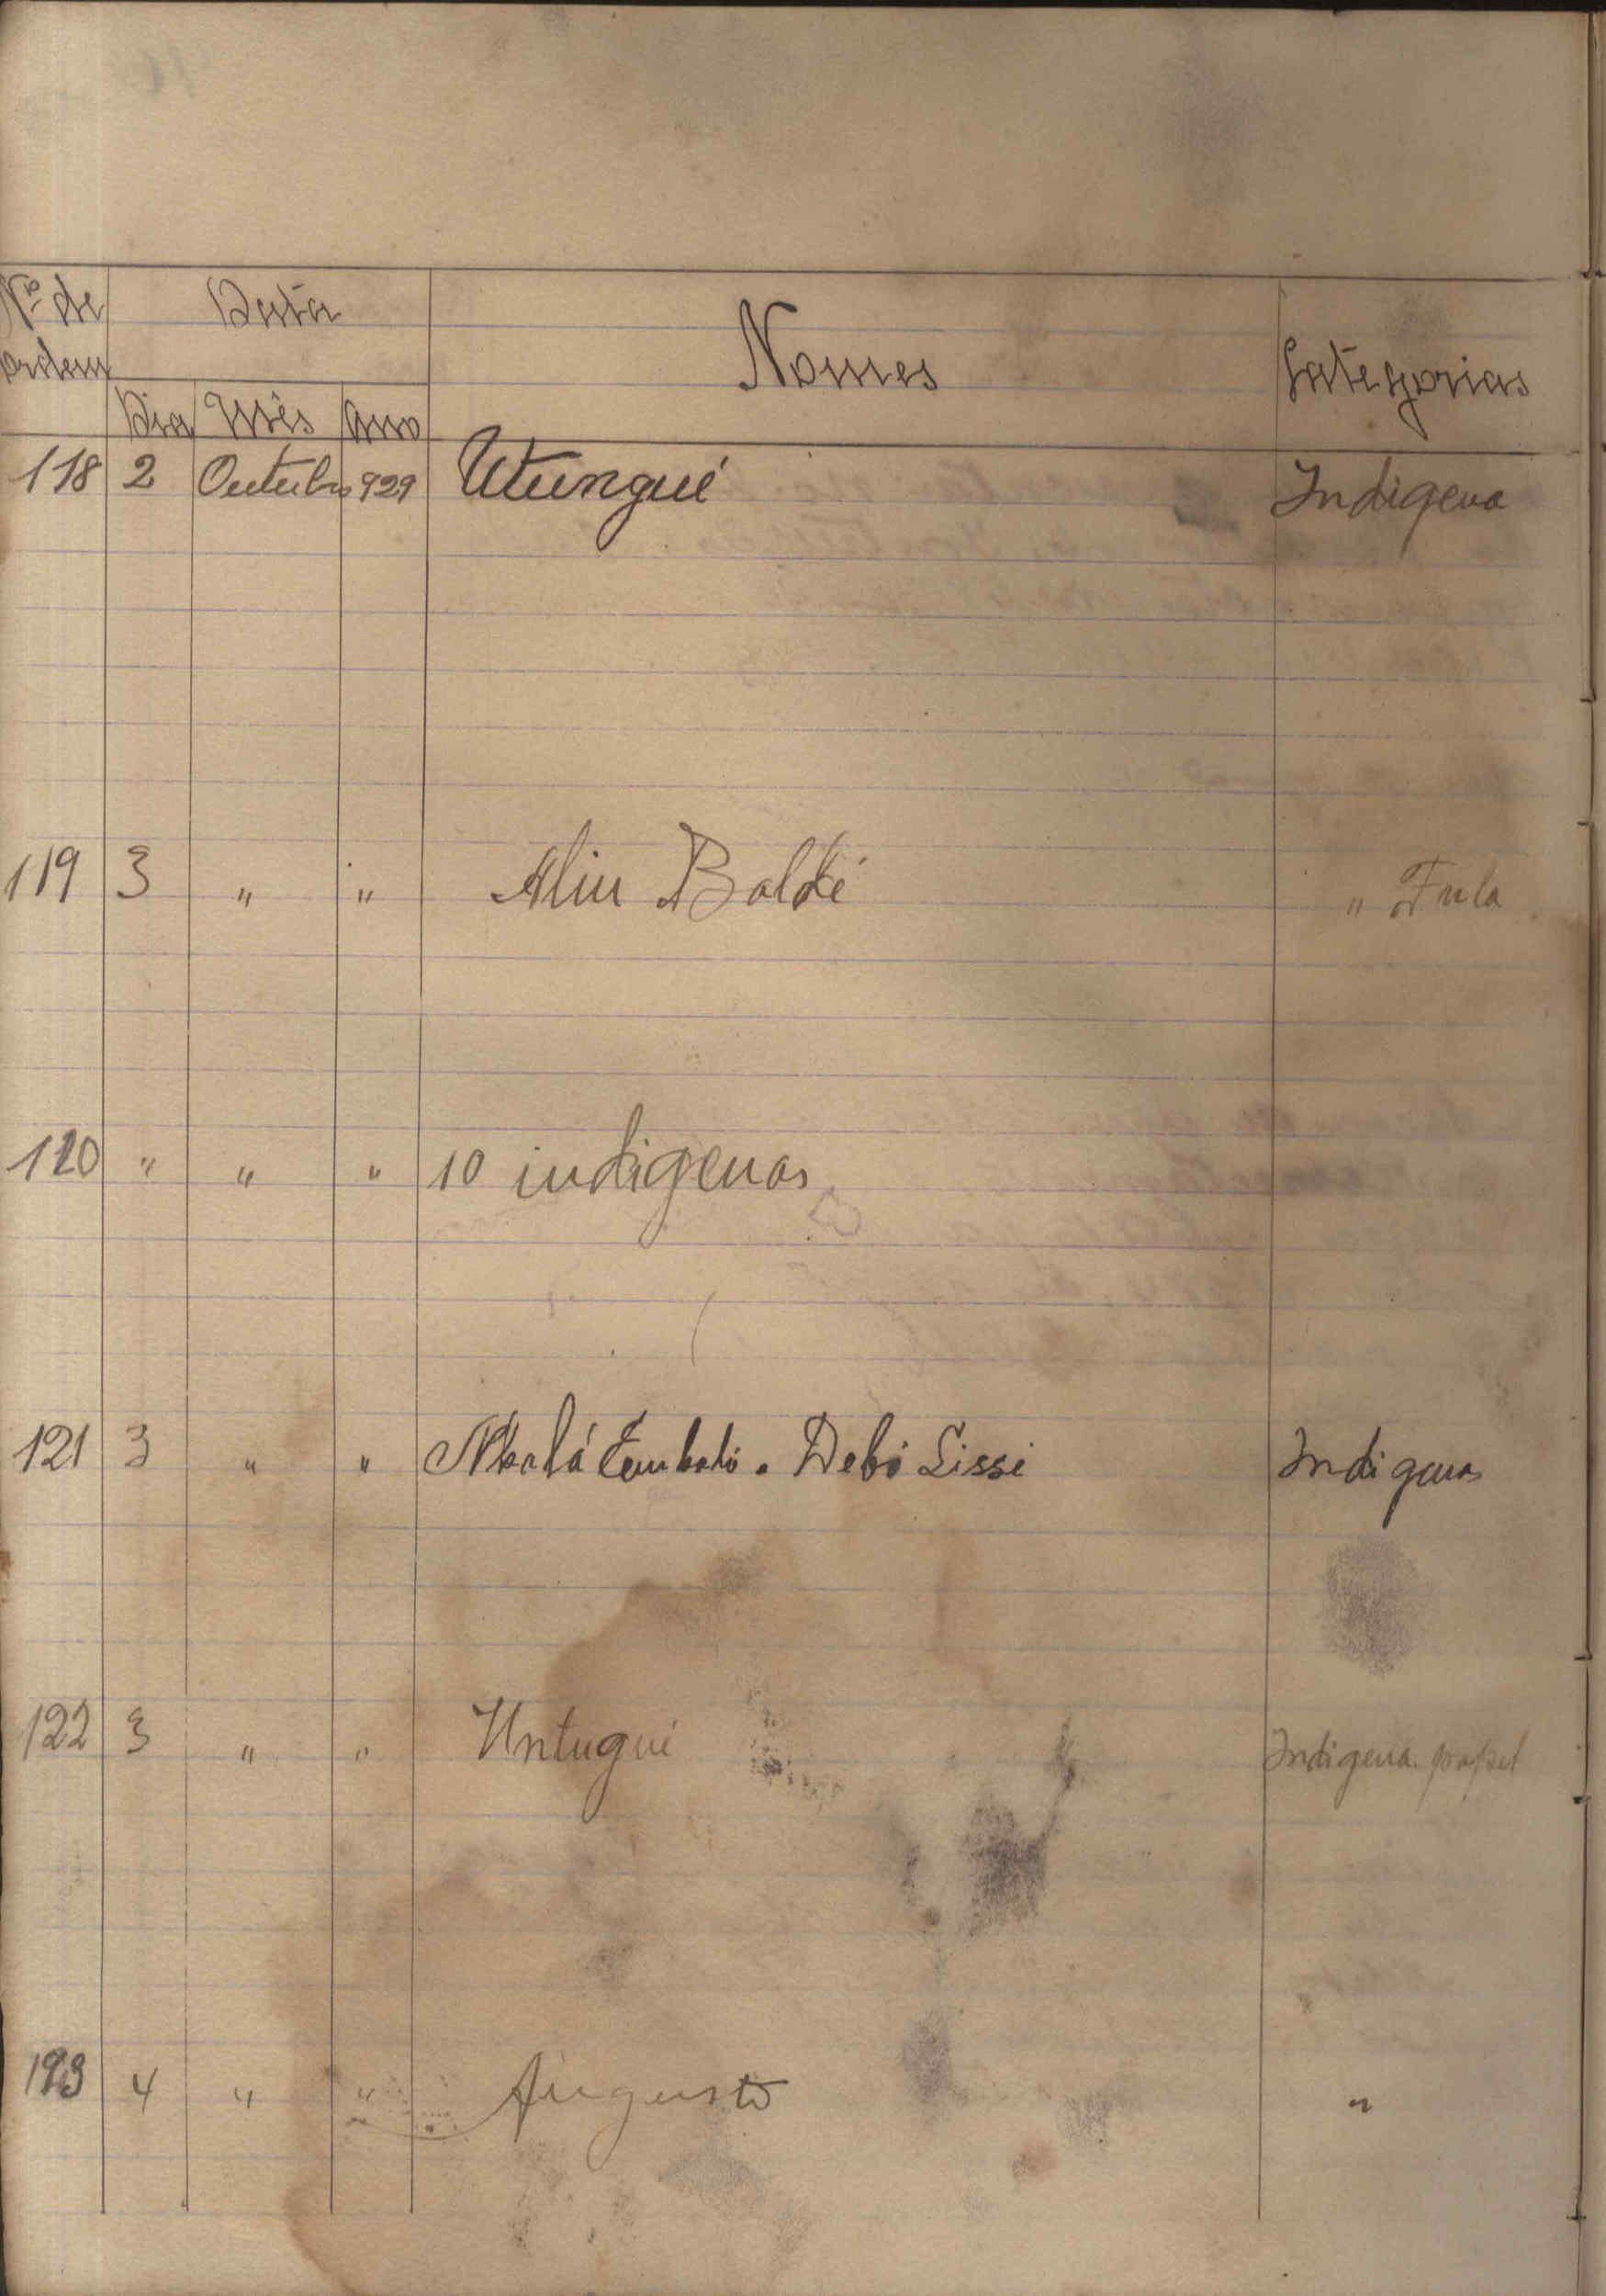 Nº de ordem Data Nomes Categorias
Dia Mês Ano
118 2 Outubro 929 Utungué Indigena
119 3 " " Aliu Baldé " Fula
120 " " " 10 indigenas
121 3 " " Debó Sissé Indigenas
122 3 " " Untugué Indigena papel
123 4 " " Augusto "